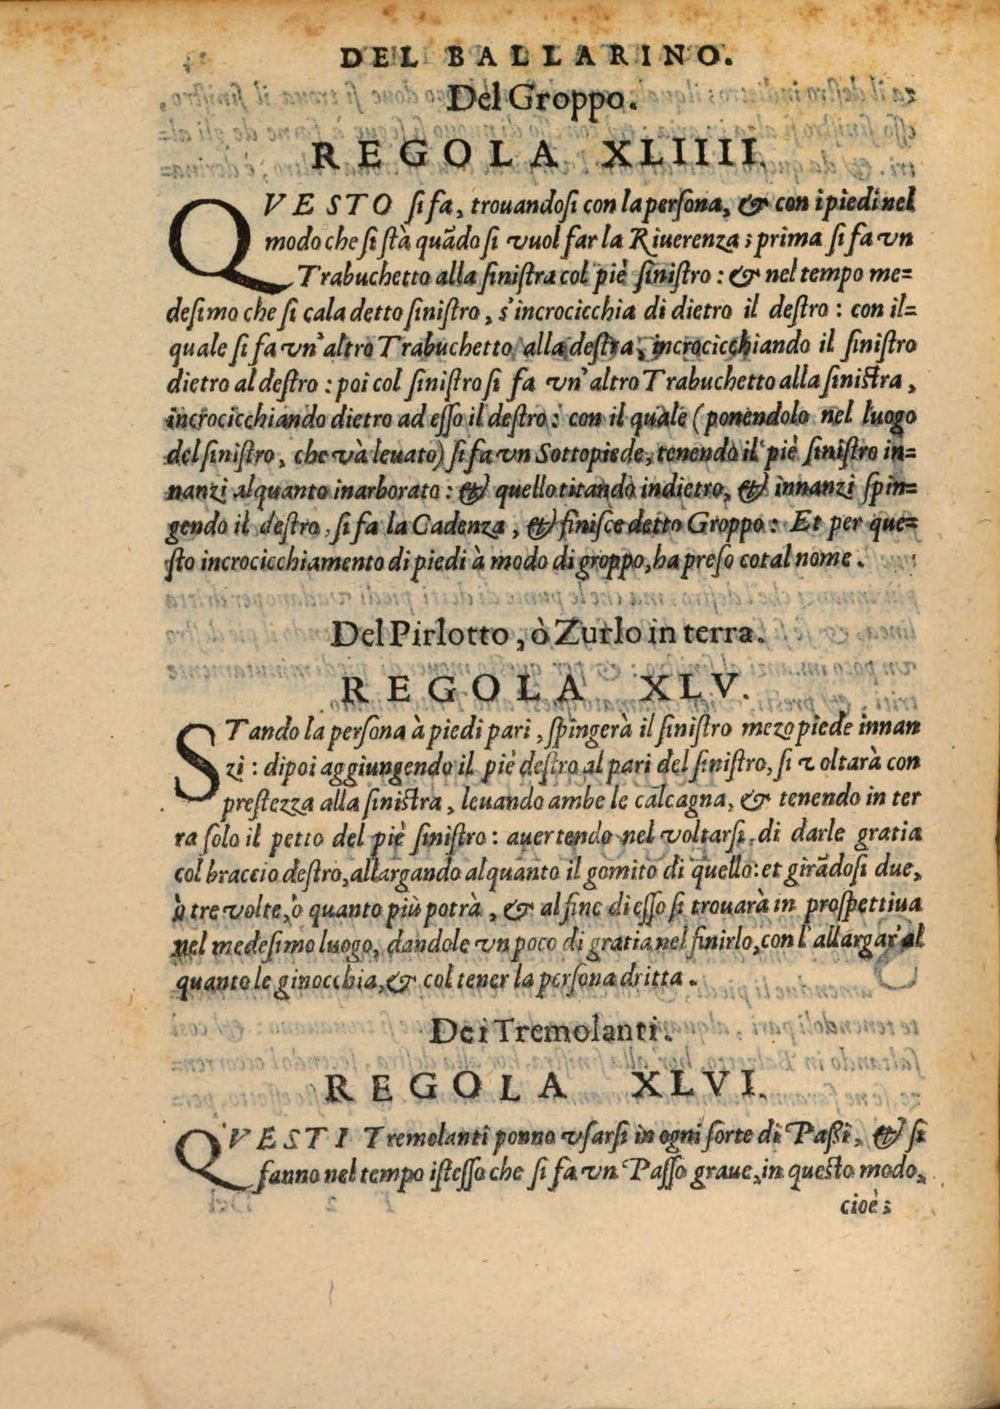 DEL BALLARINO.
Del Groppo.
REGOLA XLIIII.
QVESTO ſi fa, trouandoſi con la perſona, & con i piedi nel
modo che ſi ſtà quãdo ſi vuol far la Riuerenza; prima ſi fa vn
Trabuchetto alla ſiniſtra col piè ſiniſtro: & nel tempo me=
deſimo che ſi cala detto ſiniſtro, s'incrocicchia di dietro il deſtro: con il=
quale ſi fa vn'altro Trabuchetto alla deſtra, incrocicchiando il ſiniſtro
dietro al deſtro: poi col ſiniſtro ſi fa vn'altro Trabuchetto alla ſiniſtra,
incrocicchiando dietro ad eſſo il deſtro: con il quale (ponendolo nel luogo
del ſiniſtro, che và leuato) ſi fa vn Sottopiede, tenendo il piè ſiniſtro in=
nanzi alquanto inarborato: & quello titando indietro, & innanzi ſpin=
gendo il deſtro, ſi fa la Cadenza, & finiſce detto Groppo: Et per que=
ſto incrocicchiamento di piedi à modo di groppo, ha preſo cotal nome.
Del Pirlotto, ò Zurlo in terra.
REGOLA XLV.
STando la perſona à piedi pari, ſpingerà il ſiniſtro mezo piede innan
zi: dipoi aggiungendo il piè deſtro al pari del ſiniſtro, ſi voltarà con
preſtezza alla ſiniſtra, leuando ambe le calcagna, & tenendo in ter
ra ſolo il petto del piè ſiniſtro: auertendo nel voltarſi, di darle gratia
col braccio deſtro, allargando alquanto il gomito di quello: et girãdoſi due,
ò tre volte, ò quanto più potrà, & al fine di eſſo ſi trouarà in proſpettiua
nel medeſimo luogo, dandole vn poco di gratia nel finirlo, con l'allargar'al
quanto le ginocchia, & col tener la perſona dritta.
Dei Tremolanti.
REGOLA XLVI.
QVESTI Tremolanti ponno vſarſi in ogni ſorte di Paſſi, & ſi
fanno nel tempo iſteſſo che ſi fa vn Paſſo graue, in queſto modo,
cioè;